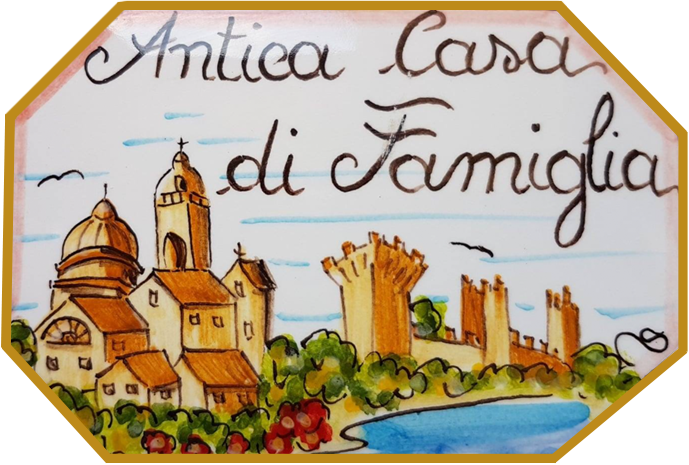 Antica Casa
di Famiglia